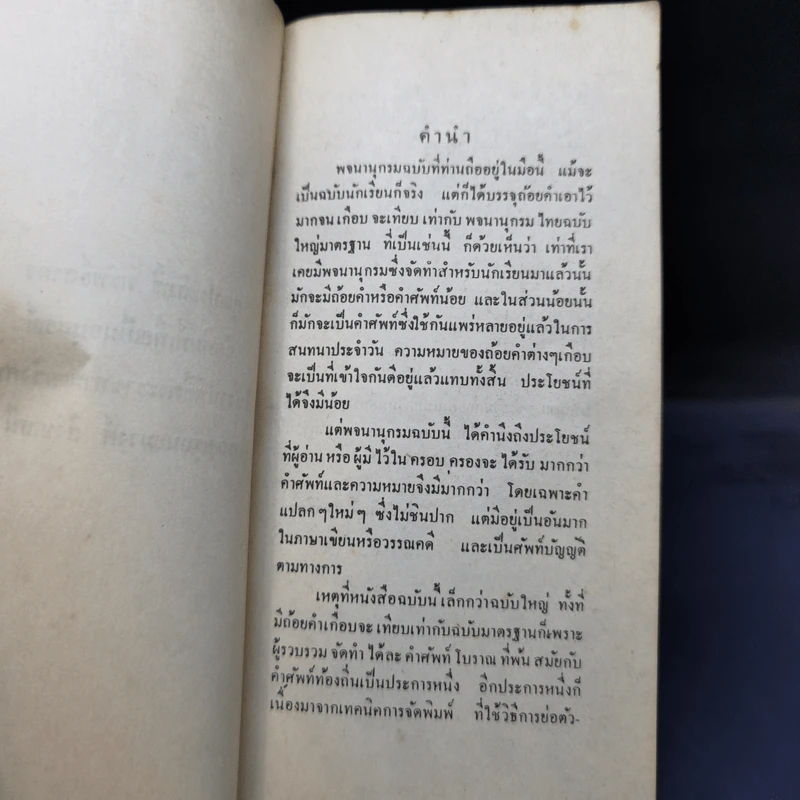 คำนำ
พจนานุกรมฉบับที่ท่านถืออยู่ในมือนี้ แม้จะ
เป็นฉบับนักเรียนก็จริง แต่ก็ได้บรรจุถ้อยคำเอาไว้
มากจน เกือบ จะเทียบ เท่ากับ พจนานุกรม ไทยฉบับ
ใหญ่มาตรฐาน ที่เป็นเช่นนี้ ก็ด้วยเห็นว่า เท่าที่เรา
เคยมีพจนานุกรมซึ่งจัดทำสำหรับนักเรียนมาแล้วนั้น
มักจะมีถ้อยคำหรือคำศัพท์น้อย และในส่วนน้อยนั้น
ก็มักจะเป็นคำศัพท์ซึ่งใช้กันแพร่หลายอยู่แล้วในการ
สนทนาประจำวัน ความหมายของถ้อยคำต่างๆเกือบ
จะเป็นที่เข้าใจกันดีอยู่แล้วแทบทั้งสิ้น ประโยชน์ที่
ได้จึงมีน้อย
แต่พจนานุกรมฉบับนี้ ได้คำนึงถึงประโยชน์
ที่ผู้อ่าน หรือ ผู้มี ไว้ใน ครอบ ครองจะ ได้รับ มากกว่า
คำศัพท์และความหมายจึงมีมากกว่า โดยเฉพาะคำ
แปลก ๆ ใหม่ ๆ ซึ่งไม่ชินปาก แต่มีอยู่เป็นอันมาก
ในภาษาเขียนหรือวรรณคดี และเป็นศัพท์บัญญัติ
ตามทางการ
เหตุที่หนังสือฉบับนี้ เล็กกว่าฉบับใหญ่ ทั้งที่
มีถ้อยคำเกือบจะ เทียบเท่ากับฉบับมาตรฐานก็เพราะ
ผู้รวบรวม จัดทำ ได้ละ คำศัพท์ โบราณ ที่พ้น สมัยกับ
คำศัพท์ท้องถิ่นเป็นประการหนึ่ง อีกประการหนึ่งก็
เนื่องมาจากเทคนิคการจัดพิมพ์ ที่ใช้วิธีการย่อตัว-